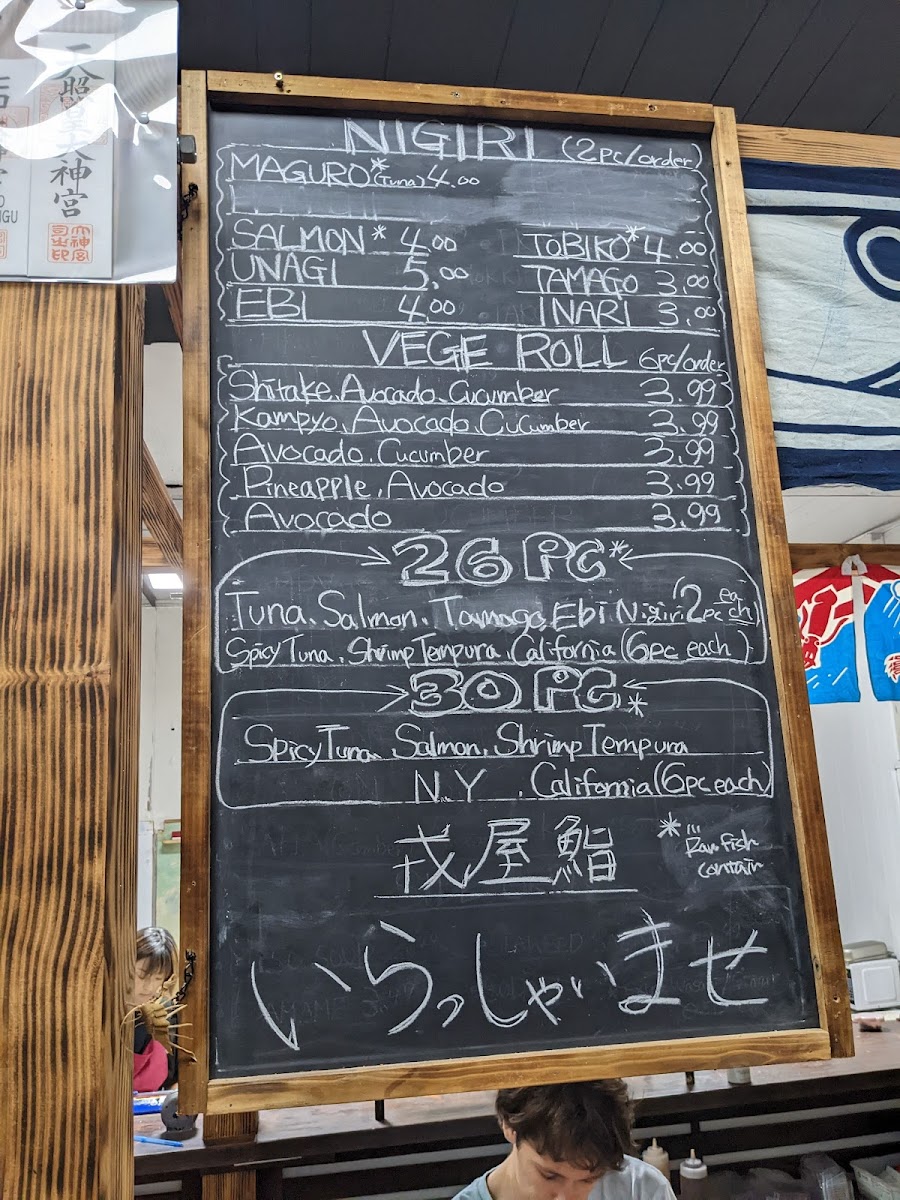 天照皇大神宮
NGU
NIGIRI (2pc/order)
MAGURO*(Tuna) 4.00
SALMON* 4.00
TOBIKO* 4.00
UNAGI 5.00
TAMAGO 3.00
EBI 4.00
INARI 3.00
VEGE ROLL 6pc/order
Shitake, Avocado, Cucumber 3.99
Kampyo, Avocado, Cucumber 3.99
Avocado, Cucumber 3.99
Pineapple, Avocado 3.99
Avocado 3.99
26 PC*
Tuna, Salmon, Tamago, Ebi Nigiri (2pc each)
Spicy Tuna, Shrimp Tempura, California (6pc each)
30 PC*
Spicy Tuna, Salmon, Shrimp Tempura
N.Y, California (6pc each)
戎屋鮨
* ... Raw fish
contain
いらっしゃいませ